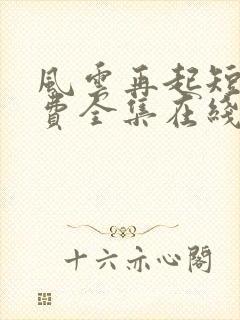 風雲再起短
費全集在綫
十六亦心閣